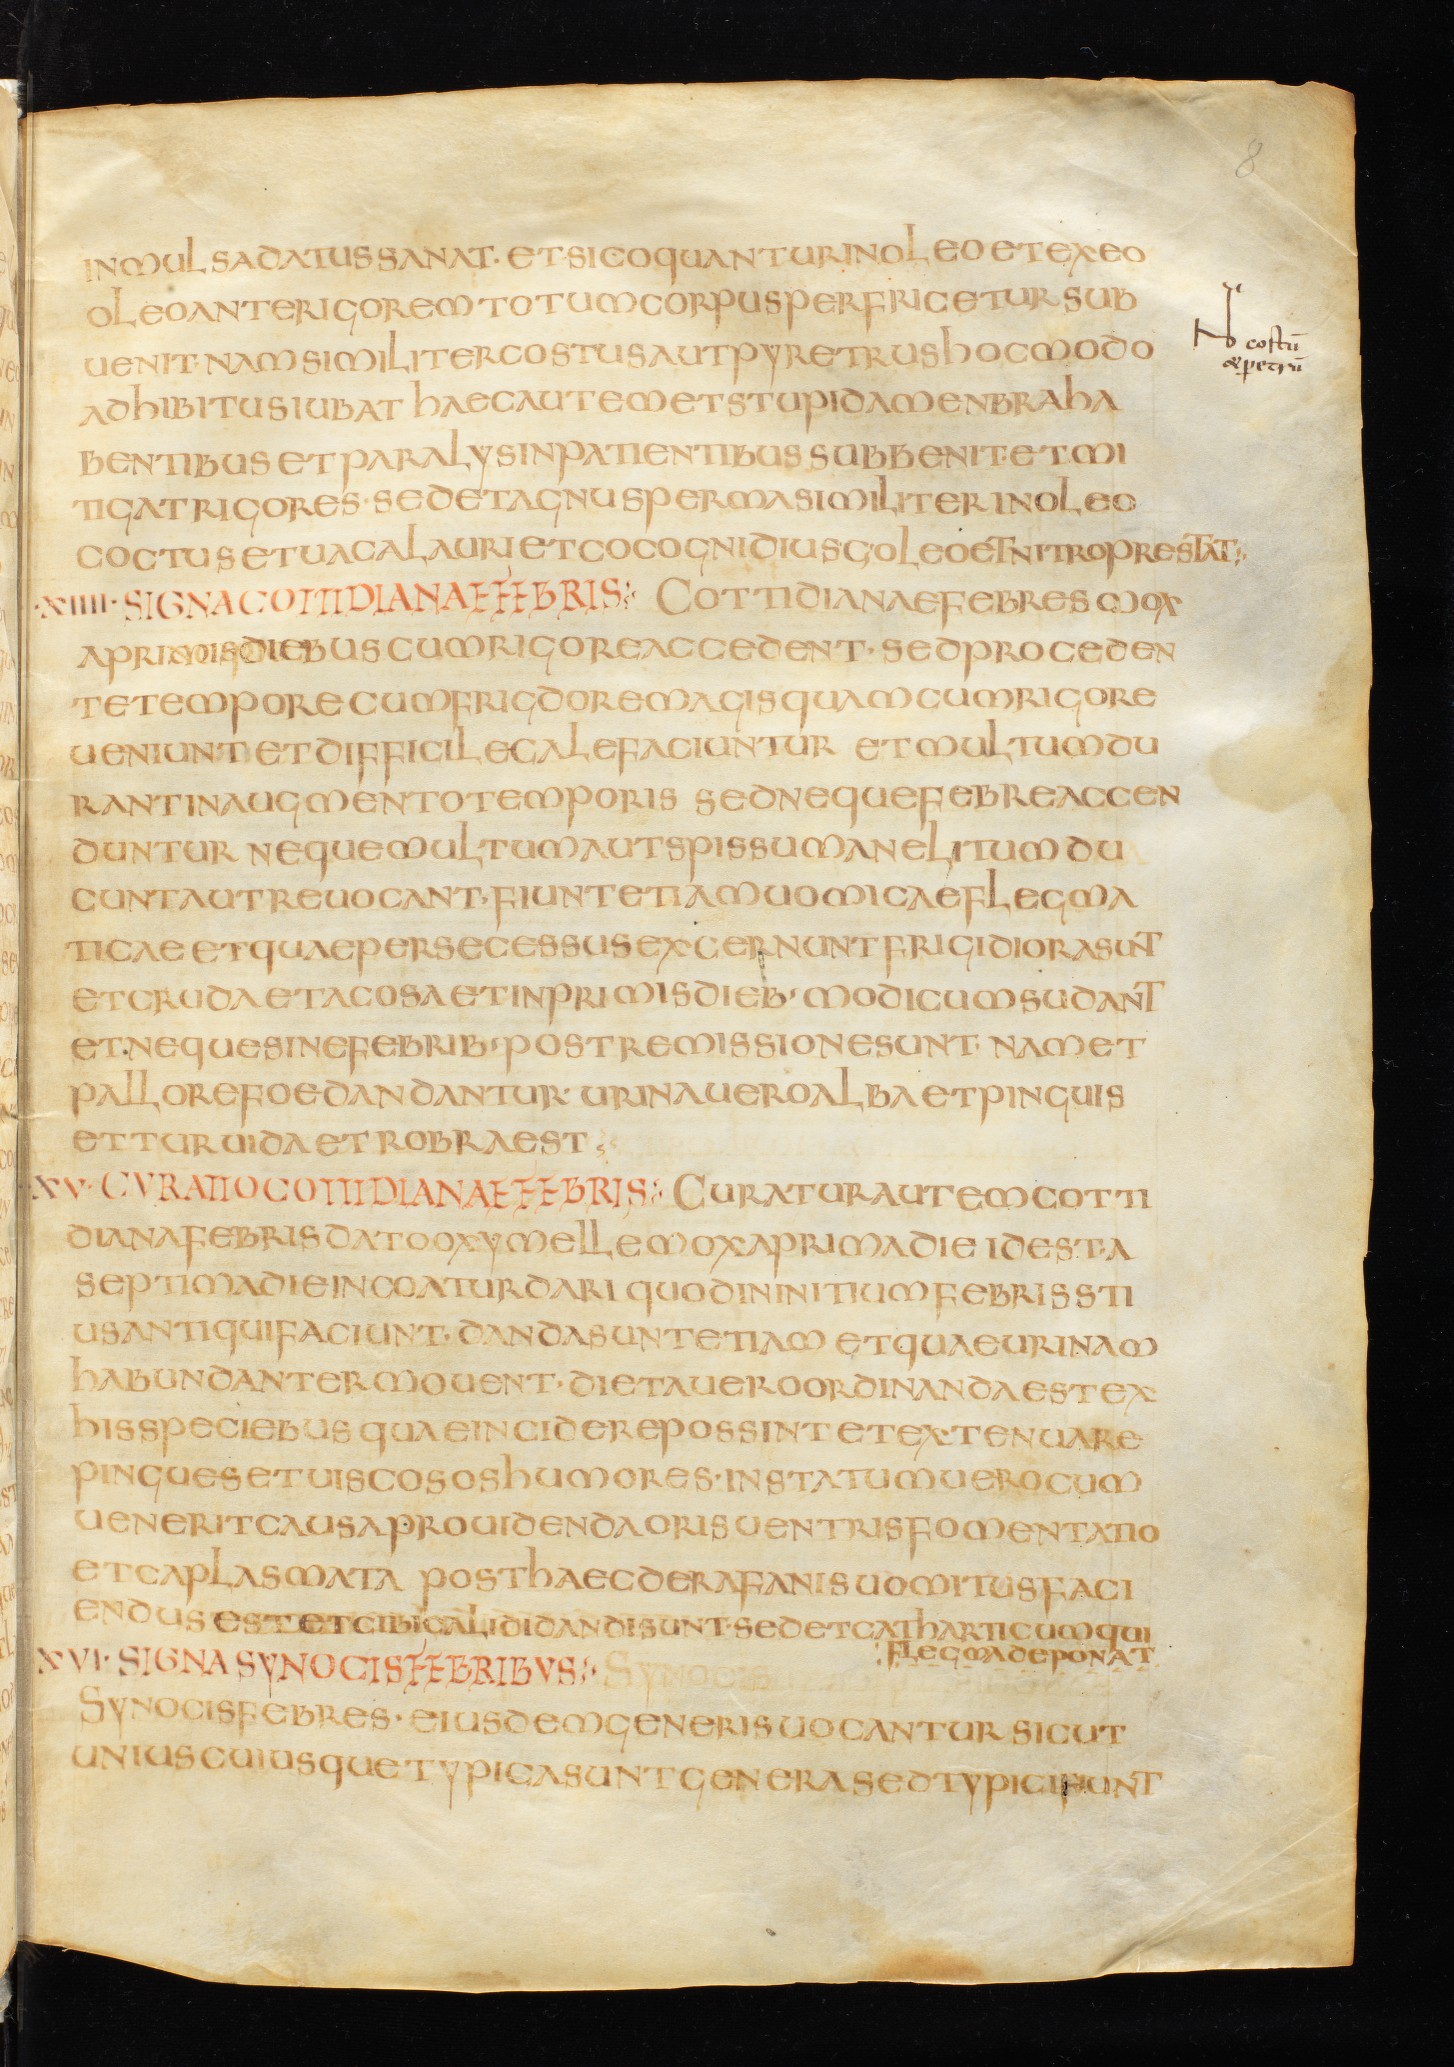 8
IN MULSA DATUS SANAT· ET SI COQUANTUR IN OLEO ET EX EO
OLEO ANTE RIGOREM TOTUM CORPUS PERFRICETUR SUB
UENIT· NAM SIMILITER COSTUS AUT PYRETRUS HOC MODO
ADHIBITUS IUBAT HAEC AUTEM ET STUPIDA MENBRA HA
BENTIBUS ET PARALYSIN PATIENTIBUS SUBBENIT· ET MI
TIGAT RIGORES· SED ET AGNU SPERMA SIMILITER IN OLEO
COCTUS ET UACA LAURI ET COCOGNIDIUS C OLEO ET NITRO PRESTAT
·XIIII· SIGNA COTTIDIANAE FEBRIS COTTIDIANAE FEBRES MOX
A PRIMIS DIEBUS CUM RIGORE ACCEDENT· SED PROCEDEN
TE TEMPORE CUM FRIGDORE MAGIS QUAM CUM RIGORE
UENIUNT ET DIFFICILE CALEFACIUNTUR ET MULTUM DU
RANT IN AUGMENTO TEMPORIS SED NEQUE FEBRE ACCEN
DUNTUR NEQUE MULTUM AUT SPISSUM ANELITUM DU
CUNT AUT REUOCANT· FIUNT ETIAM UOMICAE FLEGMA
TICAE ET QUAE PER SECESSUS EXCERNUNT FRIGIDIORA SUNT
ET CRUDA ET ACOSA ET IN PRIMIS DIEB· MODICUM SUDANT
ET· NEQUE SINE FEBRIB· POST REMISSIONE SUNT· NAM ET
PALLORE FOEDANDANTUR· URINA UERO ALBA ET PINGUIS
ET TURUIDA ET ROBRA EST
XV· CVRATIO COTTIDIANAE FEBRIS CURATUR AUTEM COTTI
DIANA FEBRIS DATO OXYMELLE MOX A PRIMA DIE ID EST· A
SEPTIMA DIE INCOATUR DARI QUOD IN INITIUM FEBRIS STI
US ANTIQUI FACIUNT· DANDA SUNT ETIAM ET QUAE URINAM
HABUNDANTER MOUENT· DIETA UERO ORDINANDA EST EX
HIS SPECIEBUS QUAE INCIDERE POSSINT ET EXTENUARE
PINGUES ET UISCOSOS HUMORES· IN STATUM UERO CUM
UENERIT CAUSA PROUIDENDA ORIS UENTRIS FOMENTATIO
ET CAPLASMATA POST HAEC DE RAFANIS UOMITUS FACI
ENDUS EST ET CIBI CALIDI DANDI SUNT· SED ET CATHARTICUM QUI
FLEGMA DEPONAT
XVI· SIGNA SYNOCIS FEBRIBVS· SYNOCIS
SYNOCIS FEBRES· EIUSDEM GENERIS UOCANTUR SICUT
UNIUSCUIUSQUE TYPICA SUNT GENERA SED TYPICI FIUNT
costū
& petrū